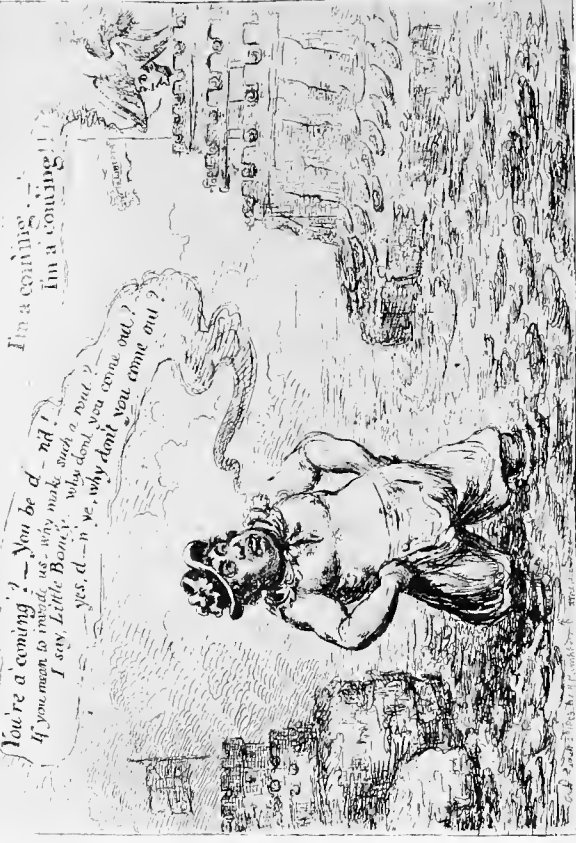 You're a coming? — You be d — nd!
If you mean to invade us, why make such a rout?
I say, Little Boney, why dont you come out?
yes, d—n ye, why don't you come out?
I'm a coming!
I'm a coming!!!